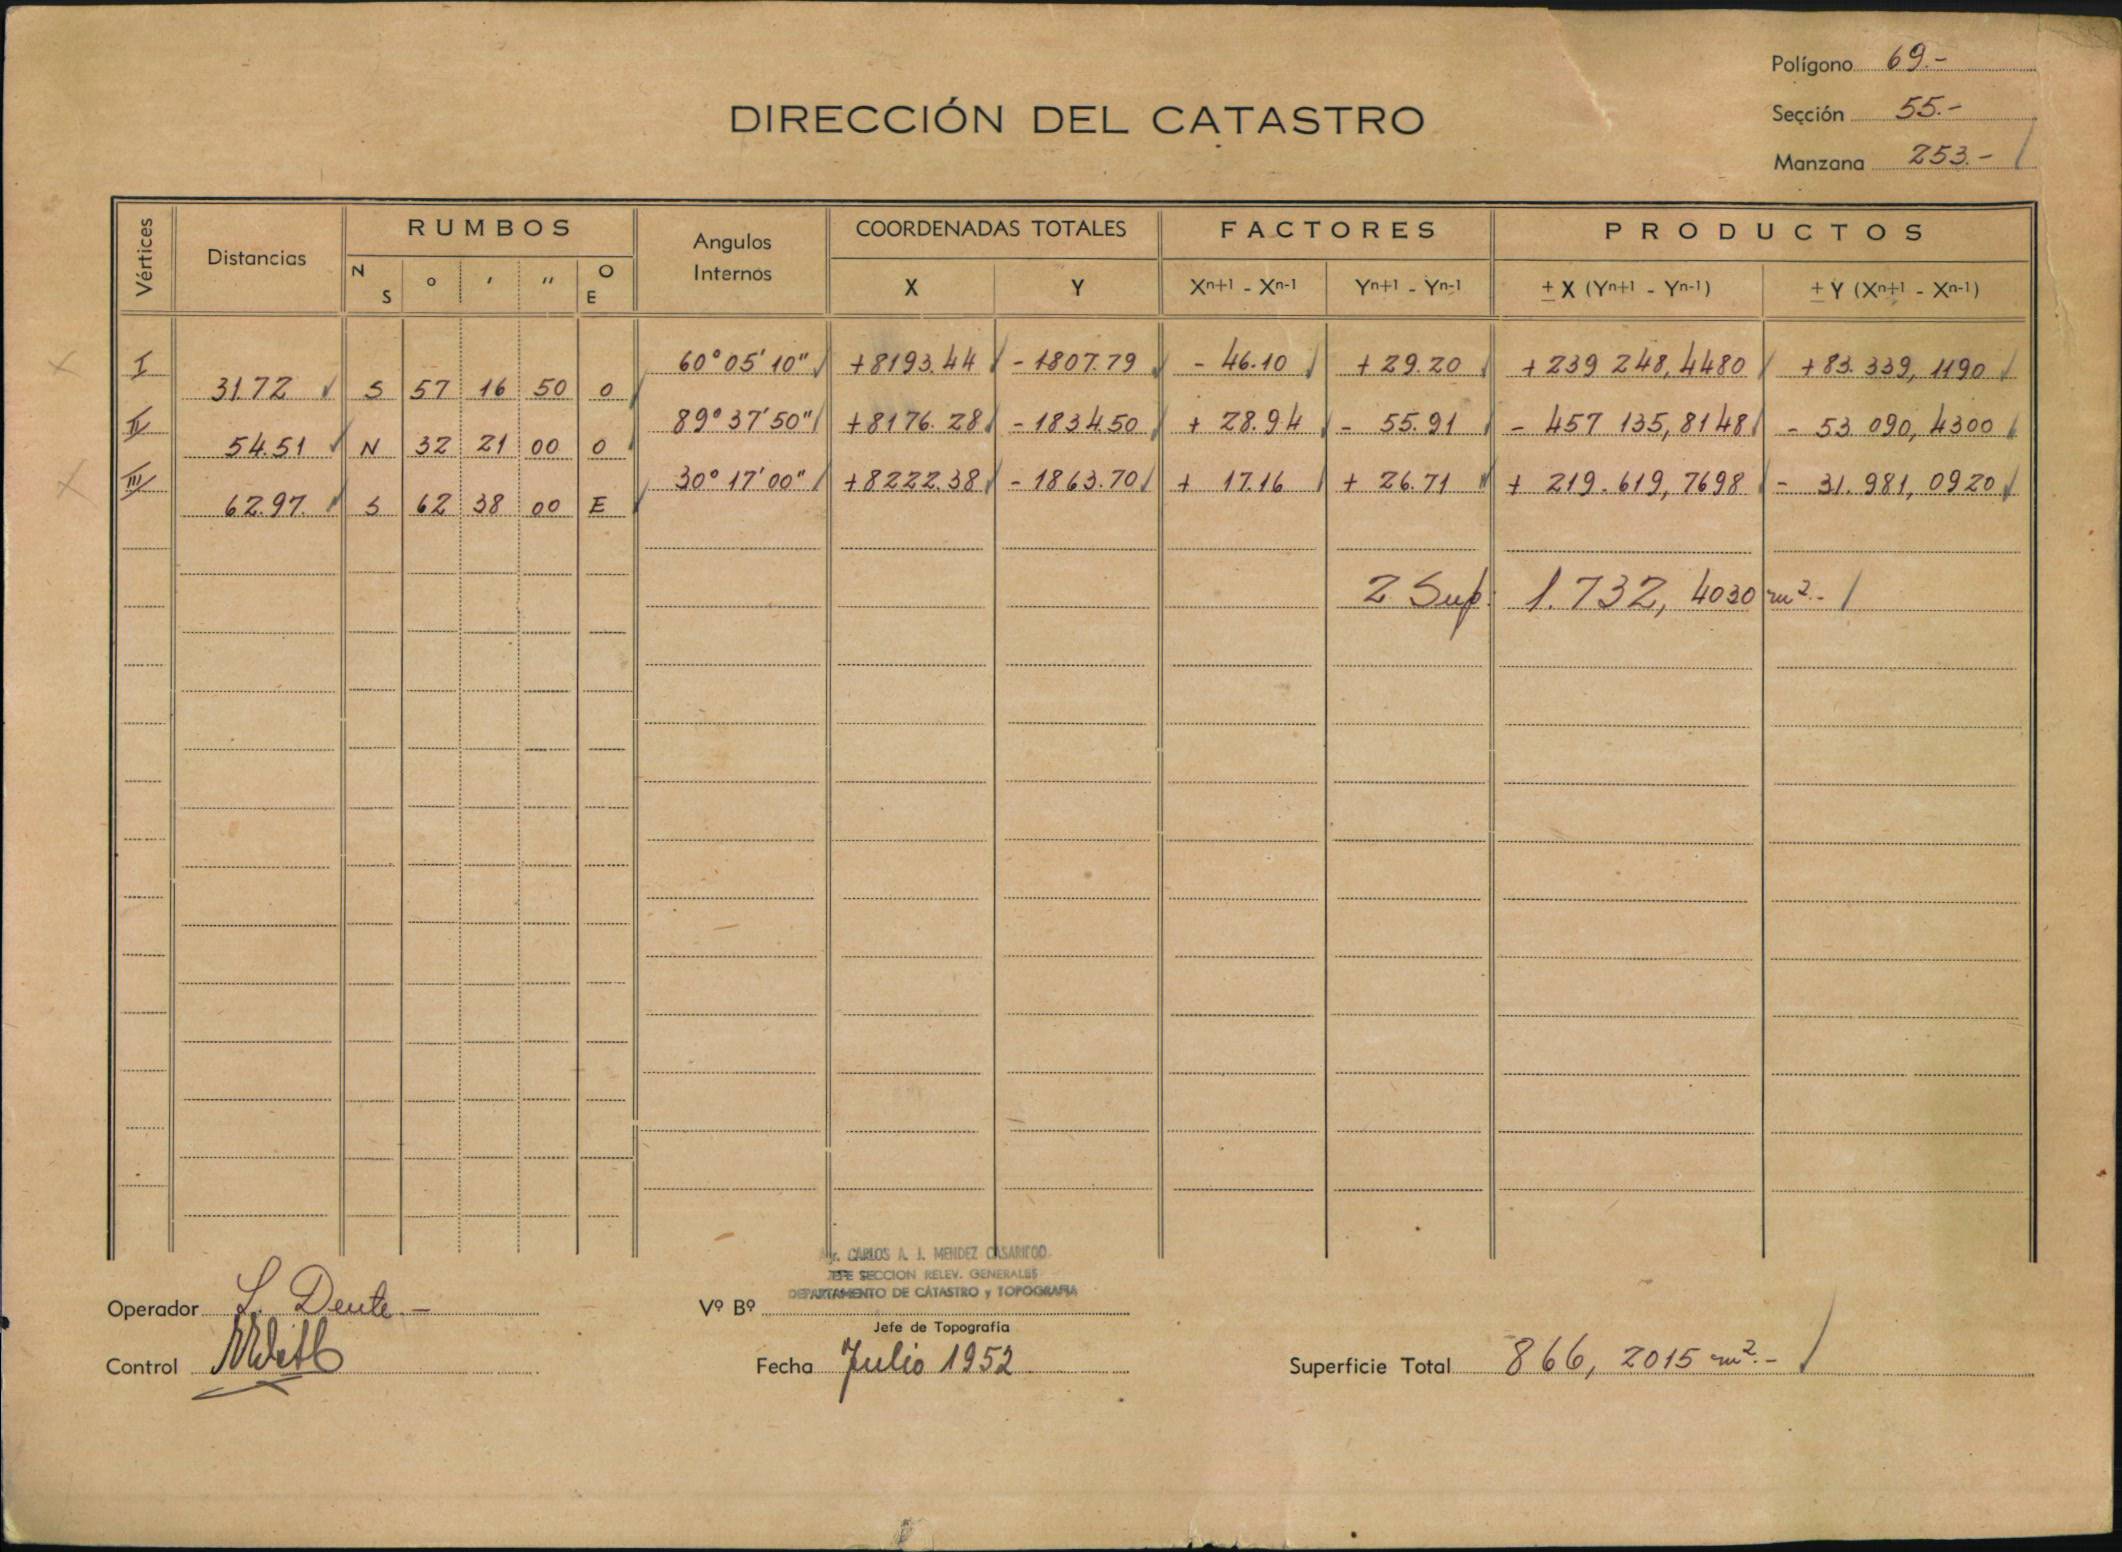 Polígono 69.-
Sección 55.-
Manzana 253.-
DIRECCIÓN DEL CATASTRO
Vértices
Distancias
RUMBOS
N S ° ′ ″ O E
Angulos Internos
COORDENADAS TOTALES
X Y
FACTORES
Xn+1 - Xn-1 Yn+1 - Yn-1
PRODUCTOS
± X (Yn+1 - Yn-1) ± Y (Xn+1 - Xn-1)
I 60° 05' 10" +8193.44 - 1807.79 - 46.10 + 29.20 + 239 248,4480 + 83.339,1190
31.72 S 57 16 50 O
II 89° 37' 50" +8176.28 - 1834.50 + 28.94 - 55.91 - 457 135,8148 - 53 090,4300
54.51 N 32 21 00 O
III 30° 17' 00" +8222.38 - 1863.70 + 17.16 + 26.71 + 219.619,7698 - 31.981,0920
62.97 S 62 38 00 E
2 Sup: 1.732,4030 m².-
CARLOS A. J. MENDEZ CASARIEGO
JEFE SECCION RELEV. GENERALES
DEPARTAMENTO DE CATASTRO y TOPOGRAFIA
Operador L. Dente.-
Vº Bº
Jefe de Topografía
Control
Fecha Julio 1952
Superficie Total 866,2015 m².-